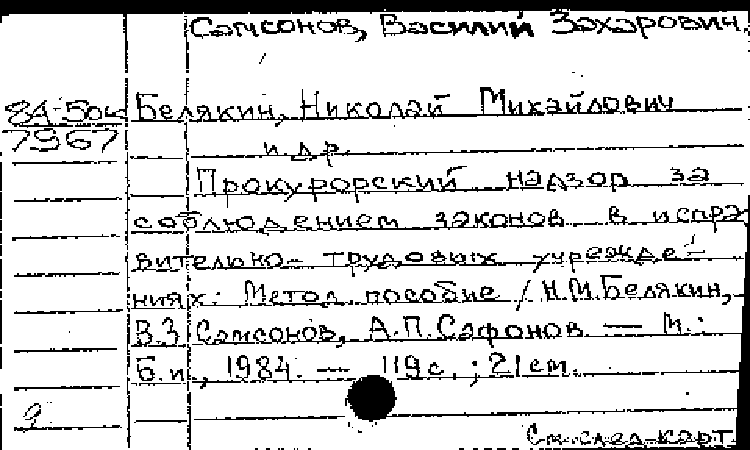 Самсонов, Василий Захарович.
84-50
7967
Белякин, Николай Михайлович
и др.
Прокурорский надзор за
соблюдением законов в испра-
вительно-трудовых учрежде-
ниях: Метод. пособие / Н.М.Белякин,
В.З.Самсонов, А.П.Сафонов. — М.:
Б.и., 1984. — 119 с.; 21 см.
См. след. карт.